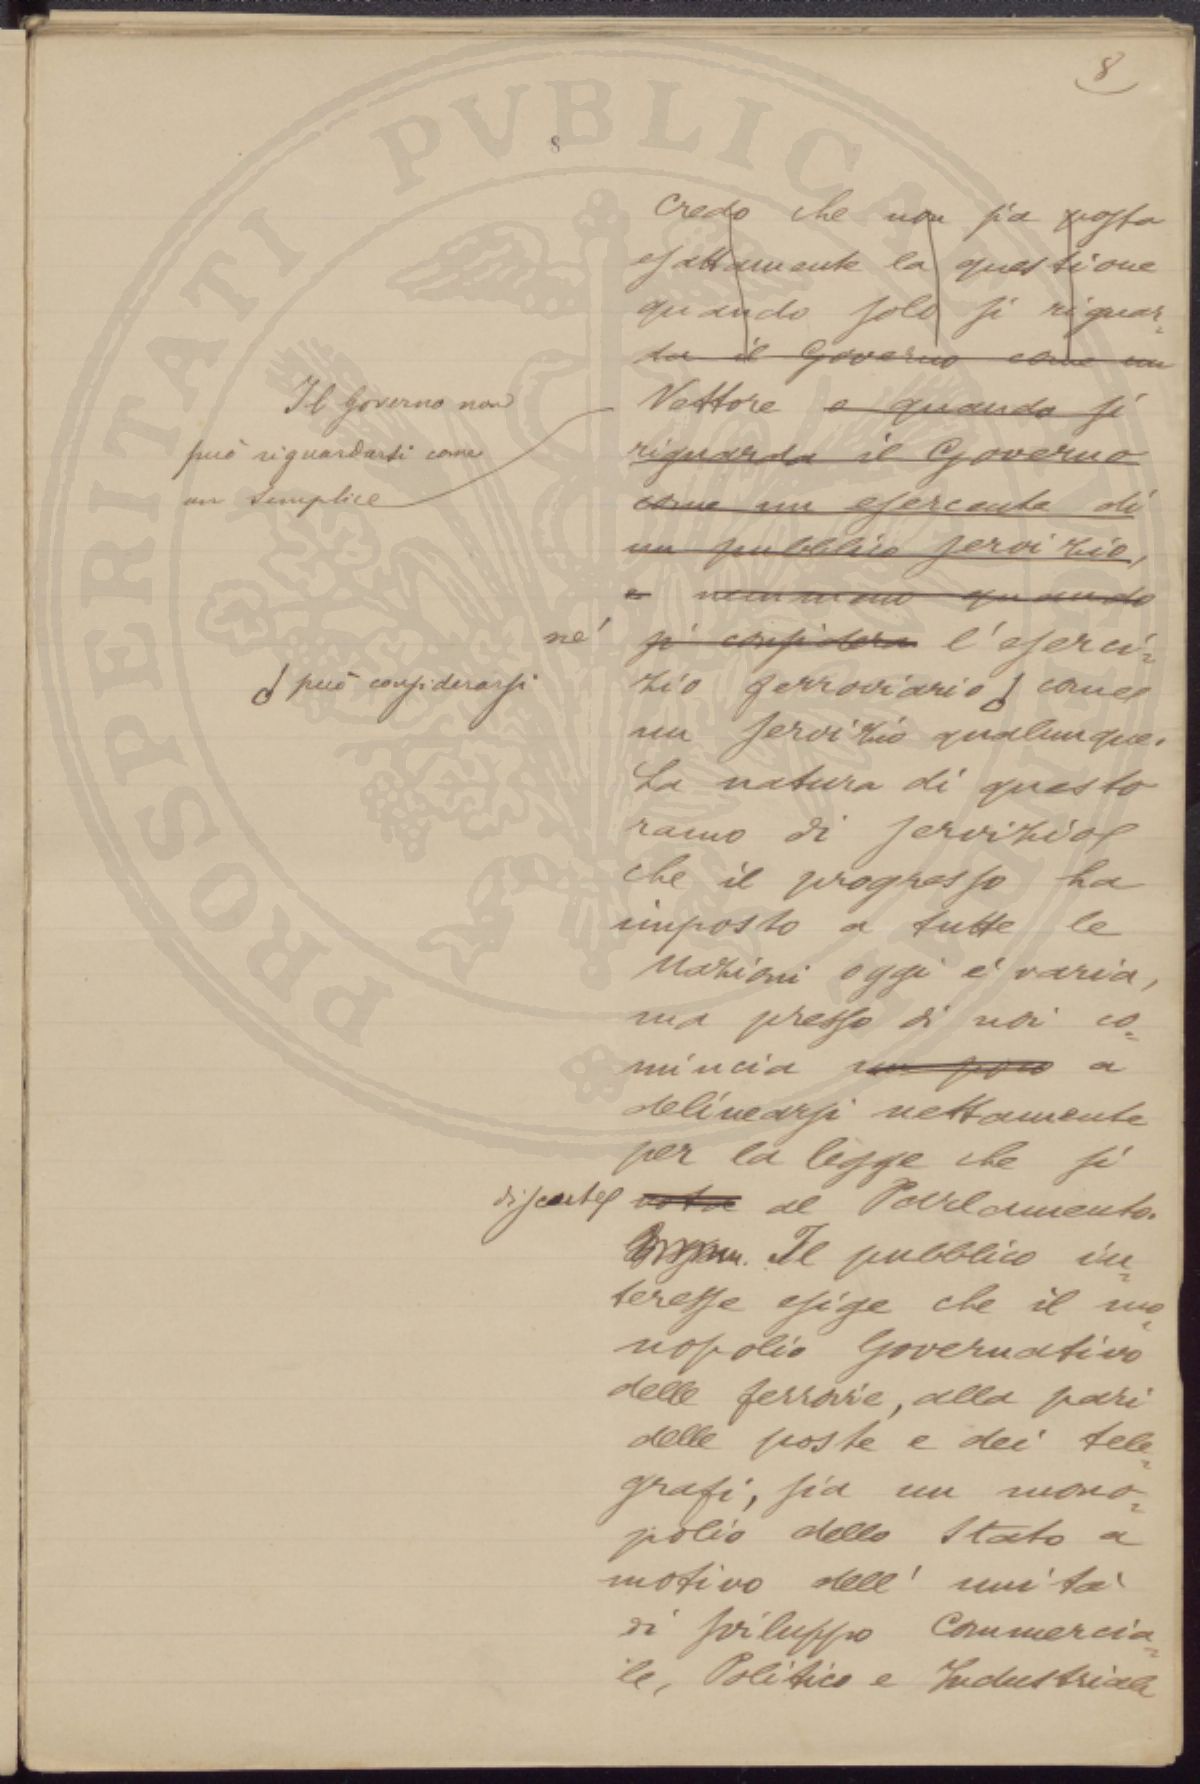 8
8
Credo che non sia posta
esattamente la questione
quando solo si riguar=
da il Governo come un
Il Governo non
può riguardarsi come
un semplice
Vettore e quando si
riguarda il Governo
come un esercente di
un pubblico servizio,
e nemmeno quando
né si considera l'eserci=
può considerarsi
zio ferroviario come
un servizio qualunque.
La natura di questo
ramo di servizio
che il progresso ha
imposto a tutte le
Nazioni oggi è varia,
ma presso di noi co=
mincia un poco a
delinearsi nettamente
per la legge che si
discute vota al Parlamento.
Il pubblico in=
teresse esige che il mo=
nopolio Governativo
delle ferrovie, alla pari
delle poste e dei tele=
grafi, sia un mono=
polio dello Stato a
motivo dell' unità
di sviluppo Commercia=
le, Politico e Industriale
PROSPERITATI PVBLICAE